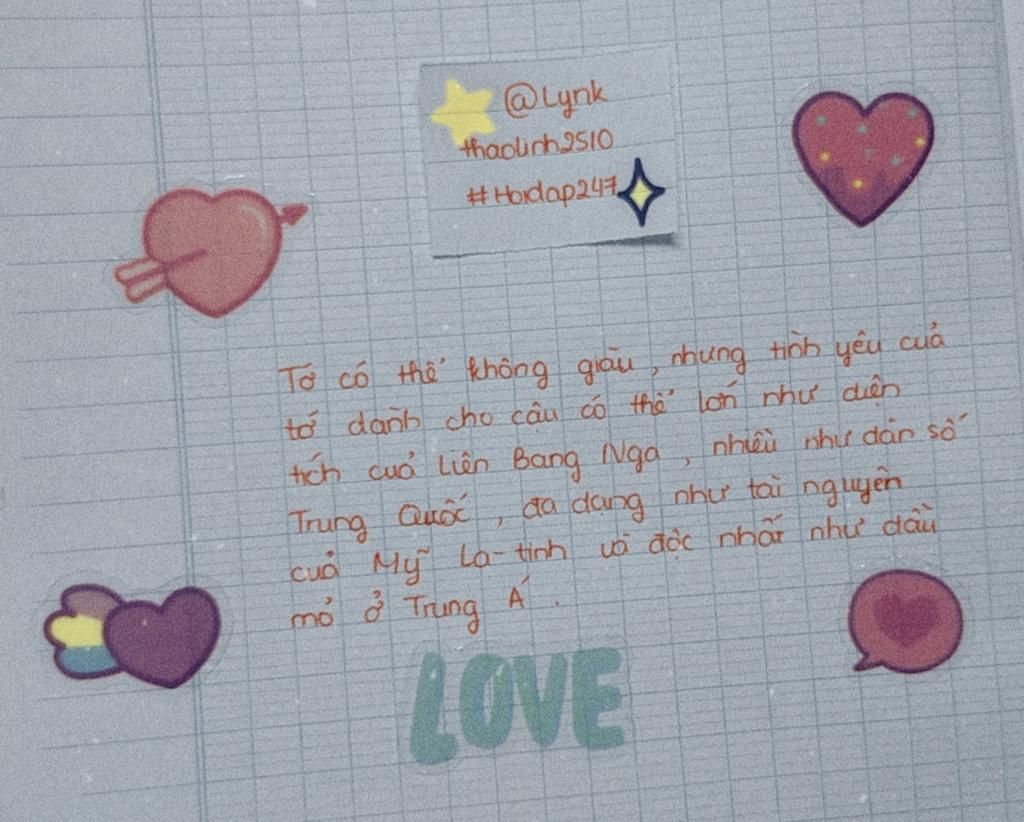 @Lynk
thaolinh2510
#Hoidap247
Tớ có thể không giàu, nhưng tình yêu của
tớ dành cho cậu có thể lớn như diện
tích của Liên Bang Nga, nhiều như dân số
Trung Quốc, đa dạng như tài nguyên
của Mỹ La-tinh và độc nhất như dầu
mỏ ở Trung Á.
LOVE